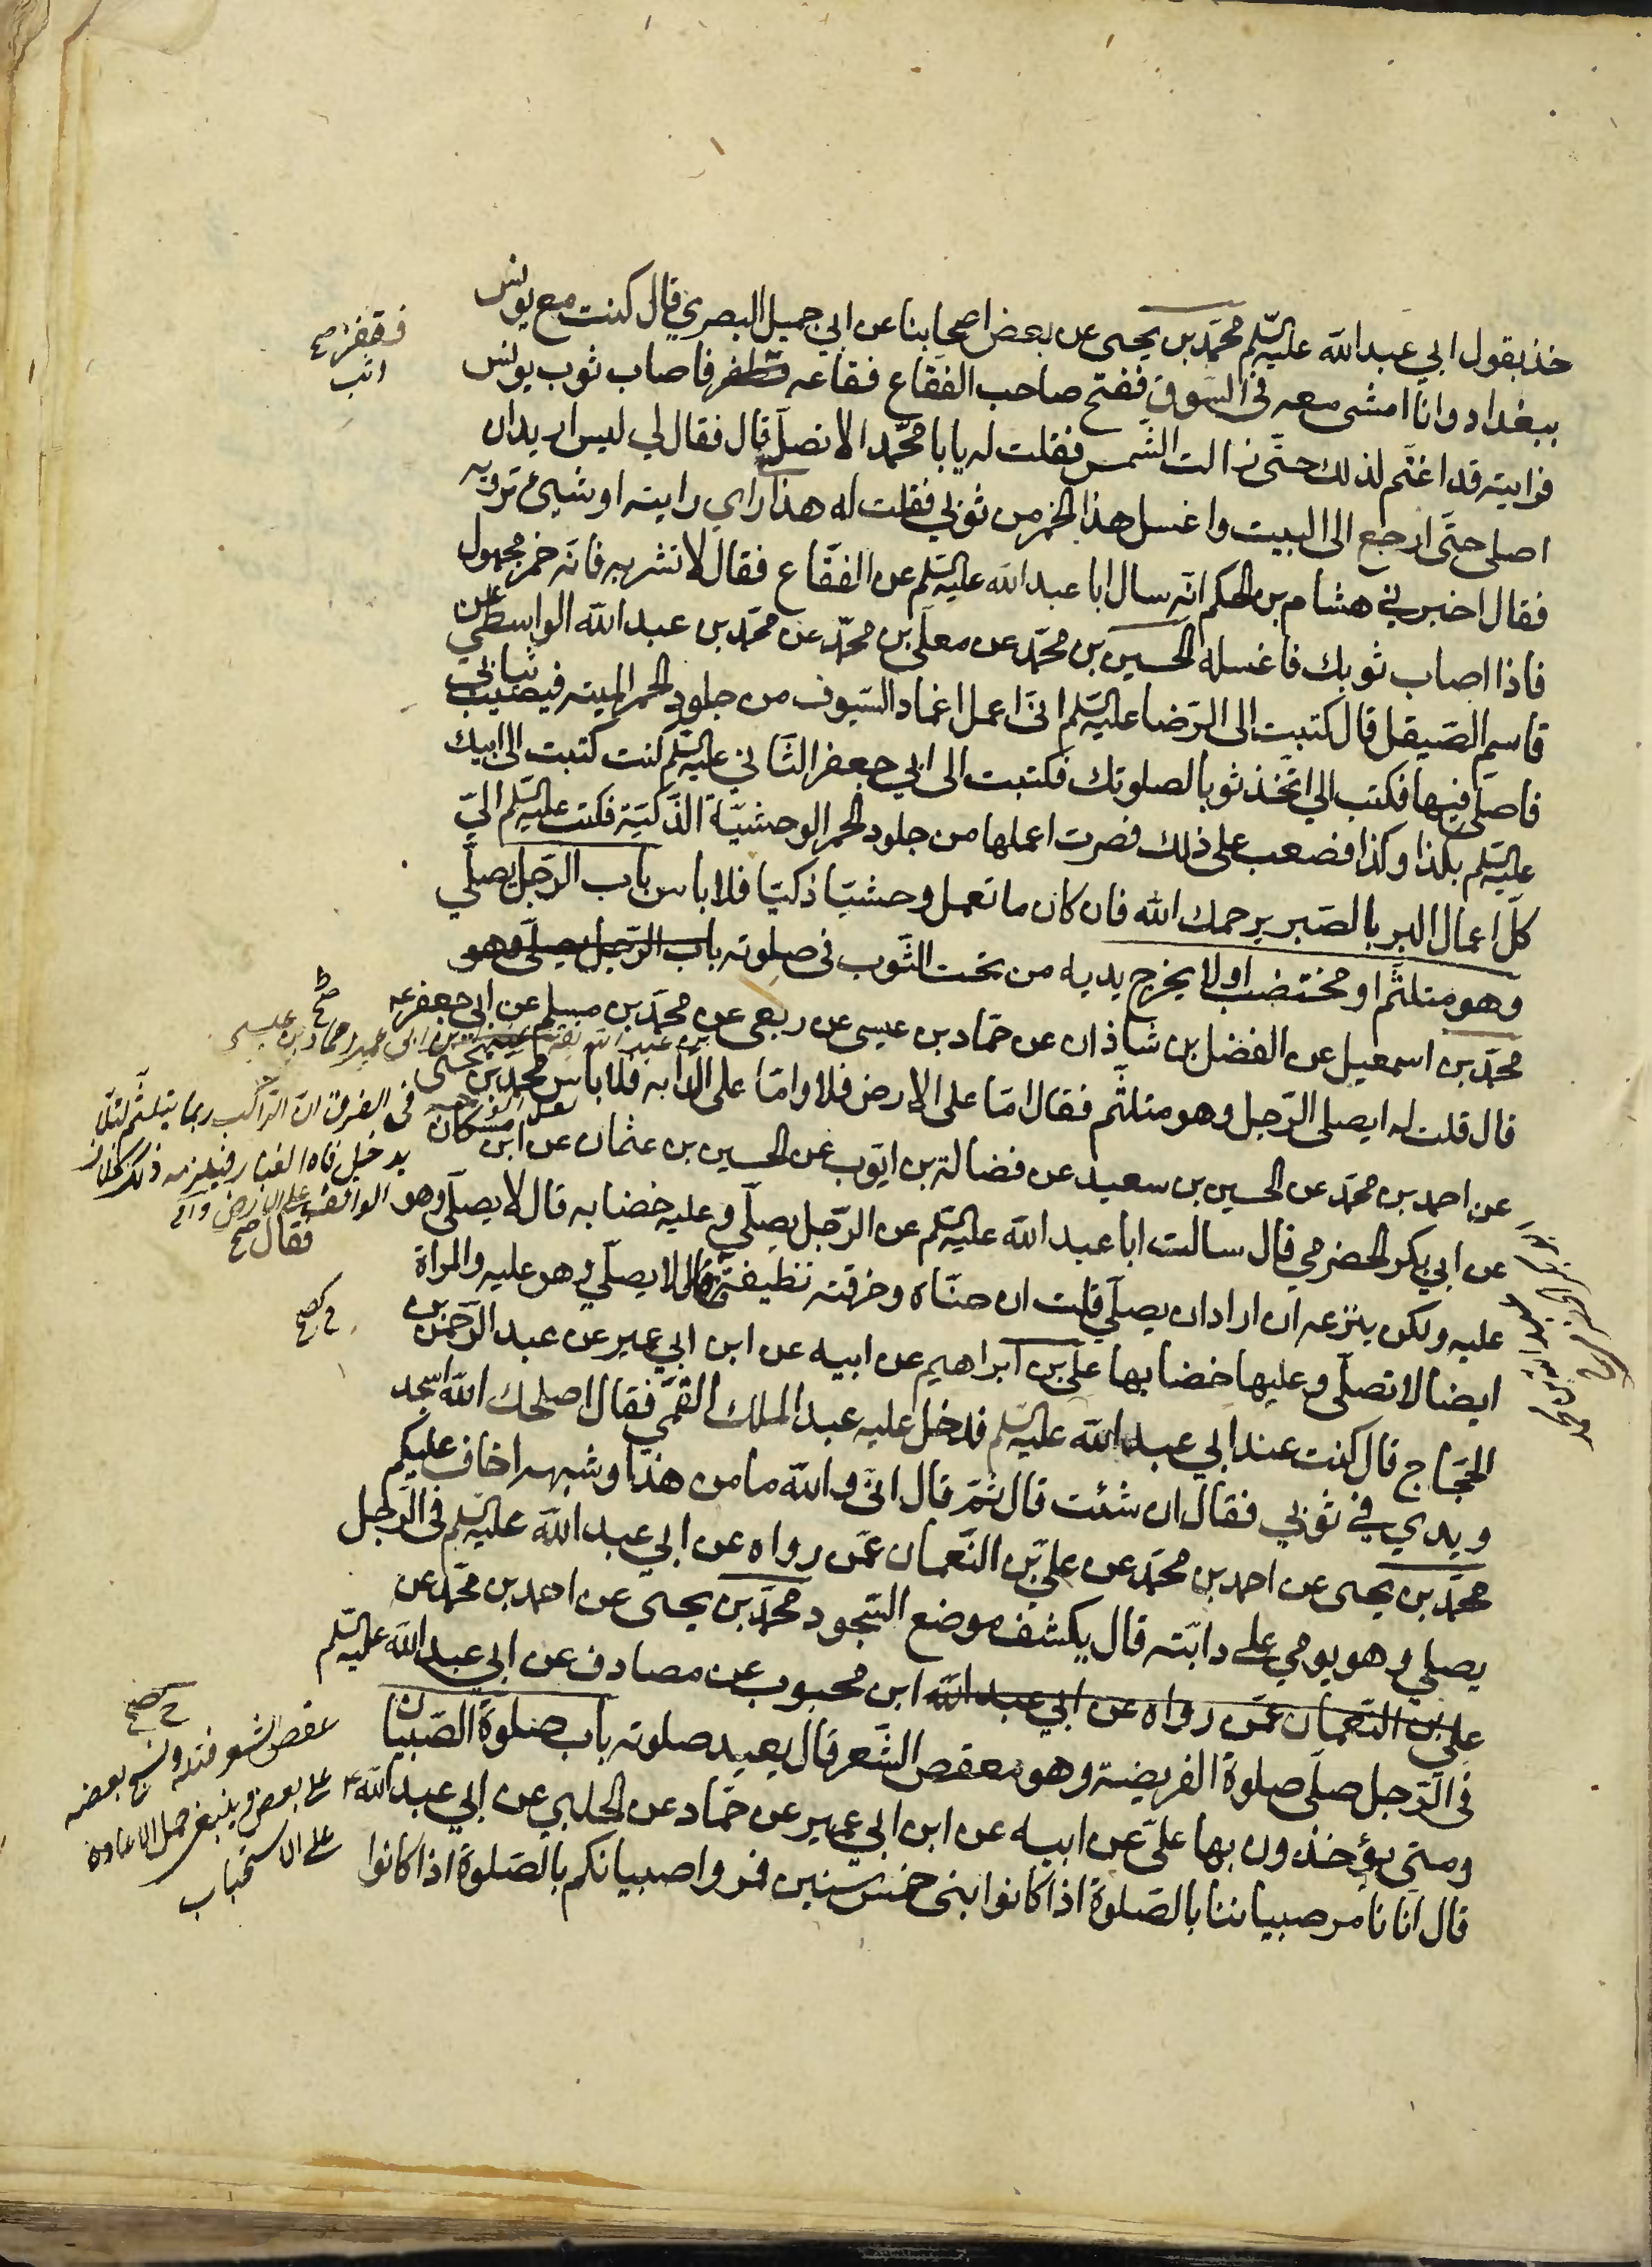 خذ بقول ابي عبد الله عليه السلم محمد بن يحيى عن بعض اصحابنا عن ابي جميل البصري قال كنت مع يونس
ببغداد وانا امشى معه فى السوق ففتح صاحب الفقاع فقاعه فاصاب ثوب يونس
فقفز صح
انب
فرايته قد اغتم لذلك حتى زالت الشمس فقلت له يا با محمد الا تصل قال فقال لي ليس اريد ان
اصلى حتى ارجع الى البيت واغسل هذا الخمر من ثوبي فقلت له هذا راي رايته او شيئ ترويه
فقال اخبرني هشام بن الحكم انه سال ابا عبد الله عليه السلم عن الفقاع فقال لا تشربه فانه خمر مجهول
فاذا اصاب ثوبك فاغسله الحسين بن محمد عن معلى بن محمد عن محمد بن عبد الله الواسطي عن
قاسم الصيقل قال كتبت الى الرضا عليه السلم انى اعمل اغماد السيوف من جلود الحمر الميته فيصيب ثيابي
فاصلى فيها فكتب الي اتخذ ثوبا لصلوتك فكتبت الى ابي جعفر الثاني عليه السلم كنت كتبت الى ابيك
عليه السلم بكذا وكذا فصعب على ذلك فصرت اعملها من جلود الحمر الوحشية الذكية فكتب عليه السلم الي
كل اعمال البر بالصبر يرحمك الله فان كان ما تعمل وحشيا ذكيا فلا باس باب الرجل يصلي
وهو متلثم او مختضب او لا يخرج يديه من تحت الثوب فى صلوته باب الرجل يصلى وهو
محمد بن اسمعيل عن الفضل بن شاذان عن حماد بن عيسى عن ربعى عن محمد بن مسلم عن ابى جعفر ع
قال قلت له ايصلى الرجل وهو متلثم فقال اما على الارض فلا واما على الدابه فلا باس محمد بن يحيى
فى الفرق ان الراكب ربما يتلثم لئلا
يدخل فاه الغبار فيلزمه ذلك بخلاف
الواقف على الارض
عن احمد بن محمد عن الحسين بن سعيد عن فضالة بن ايوب عن الحسين بن عثمان عن ابن مسكان
عن ابي بكر الحضرمي قال سالت ابا عبد الله عليه السلم عن الرجل يصلي وعليه خضابه قال لا يصلى وهو
فقال صح
عليه ولكن ينزعه ان اراد ان يصلي قلت ان حناه وخرقته نظيفة قال لا يصلي وهو عليه والمراة
ايضا لا تصلى وعليها خضابها على بن ابراهيم عن ابيه عن ابن ابي عمير عن عبد الرحمن بن
الحجاج قال كنت عند ابي عبد الله عليه السلم فدخل عليه عبد الملك القمي فقال اصلحك الله اسجد
ويدي في ثوبي فقال ان شئت قال ثم قال انى والله ما من هذا وشبهه اخاف عليكم
محمد بن يحيى عن احمد بن محمد عن علي بن النعمان عمن رواه عن ابي عبد الله عليه السلم فى الرجل
يصلي وهو يومي على دابته قال يكشف موضع السجود محمد بن يحيى عن احمد بن محمد عن
على بن النعمان عمن رواه عن ابي عبد الله ابن محبوب عن مصادف عن ابي عبد الله عليه السلم
فى الرجل صلى صلوة الفريضة وهو معقص الشعر قال يعيد صلوته باب صلوة الصبيان
عقص الشعر فتله ونسج بعضه
على بعض وينبغى حمل الاعادة
على الاستحباب
ومتى يؤخذون بها على عن ابيه عن ابن ابي عمير عن حماد عن الحلبي عن ابي عبد الله ع
قال انا نامر صبياننا بالصلوة اذا كانوا بنى خمس سنين فمروا صبيانكم بالصلوة اذا كانوا